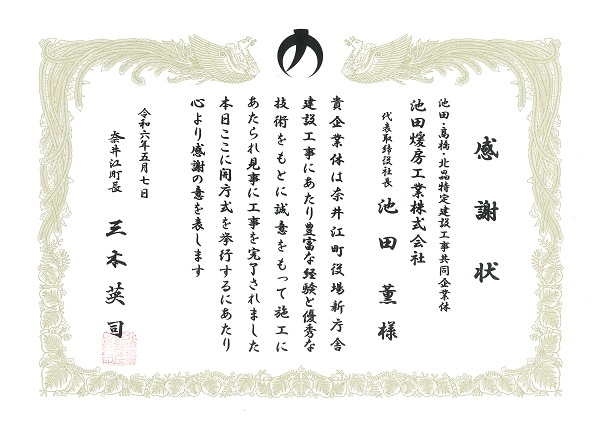 感謝状
池田・髙橋・北晶特定建設工事共同企業体
池田煖房工業株式会社
代表取締役社長 池田薫様
貴企業体は奈井江町役場新庁舎
建設工事にあたり豊富な経験と優秀な
技術をもとに誠意をもって施工に
あたられ見事に工事を完了されました
本日ここに開庁式を挙行するにあたり
心より感謝の意を表します
令和六年五月七日
奈井江町長 三本英司